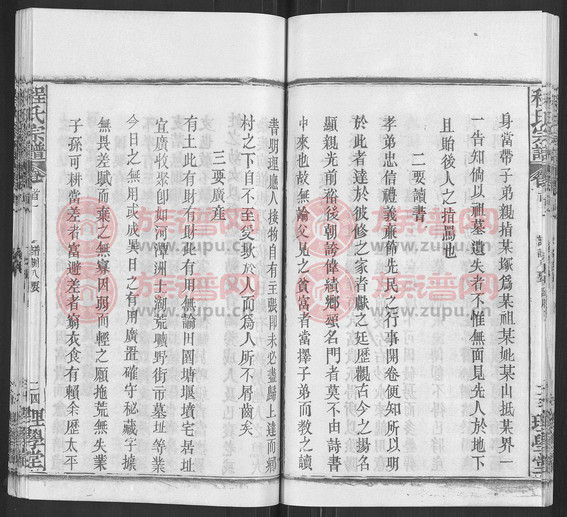 身當帶子弟親掃某塚爲某祖某妣某山抵某界一
一告知倘以祖墓遺失者不惟無面見先人於地下
且貽後人之指謫也
二要讀書
孝弟忠信禮義廉節先民之行事開卷便知所以明
於此者達於彼修於家者獻之廷歷觀古今之揚名
中來也故無論父兄之貧富者當擇子弟而教之讀
光前裕後朝誇偉績鄉頌名門者莫不由詩書
書明理應人接物自有主張即未必盡歸上達而鄉
村之下自不至受欺於人而爲人所不屑齒矣
三要廣産
有土此有財有財此有用無論田園塘堰墳宅居址
宜廣收聚卽如河潭洲土湖荒曠野街市墓址等業
今日之無用或成異日之有用廣置確守秘藏字據
無畏差賦而棄之無辱弱而輕之願拖荒無失業
子孫可耕當差者富避差者窮衣食有賴余歷太平
程氏宗譜
卷首一
譜訓八要
二四
理學堂
程氏宗譜
理學堂
族譜网
www.zupu.cn
族譜网
www.zupu.cn
族譜网
www.zupu.cn
族譜网
www.zupu.cn